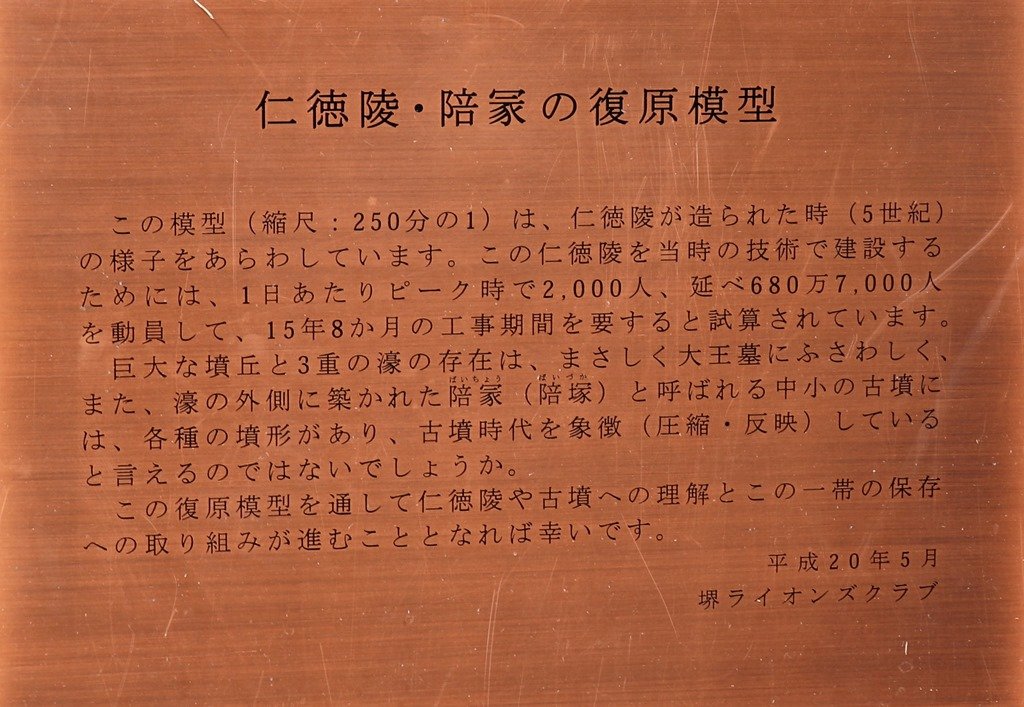 仁徳陵・陪冢の復原模型
この模型（縮尺：250分の1）は、仁徳陵が造られた時（5世紀）
の様子をあらわしています。この仁徳陵を当時の技術で建設する
ためには、1日あたりピーク時で2,000人、延べ680万7,000人
を動員して、15年8か月の工事期間を要すると試算されています。
巨大な墳丘と3重の濠の存在は、まさしく大王墓にふさわしく、
ばいちょう ばいづか
また、濠の外側に築かれた陪冢（陪塚）と呼ばれる中小の古墳に
は、各種の墳形があり、古墳時代を象徴（圧縮・反映）している
と言えるのではないでしょうか。
この復原模型を通して仁徳陵や古墳への理解とこの一帯の保存
への取り組みが進むこととなれば幸いです。
平成20年5月
堺ライオンズクラブ